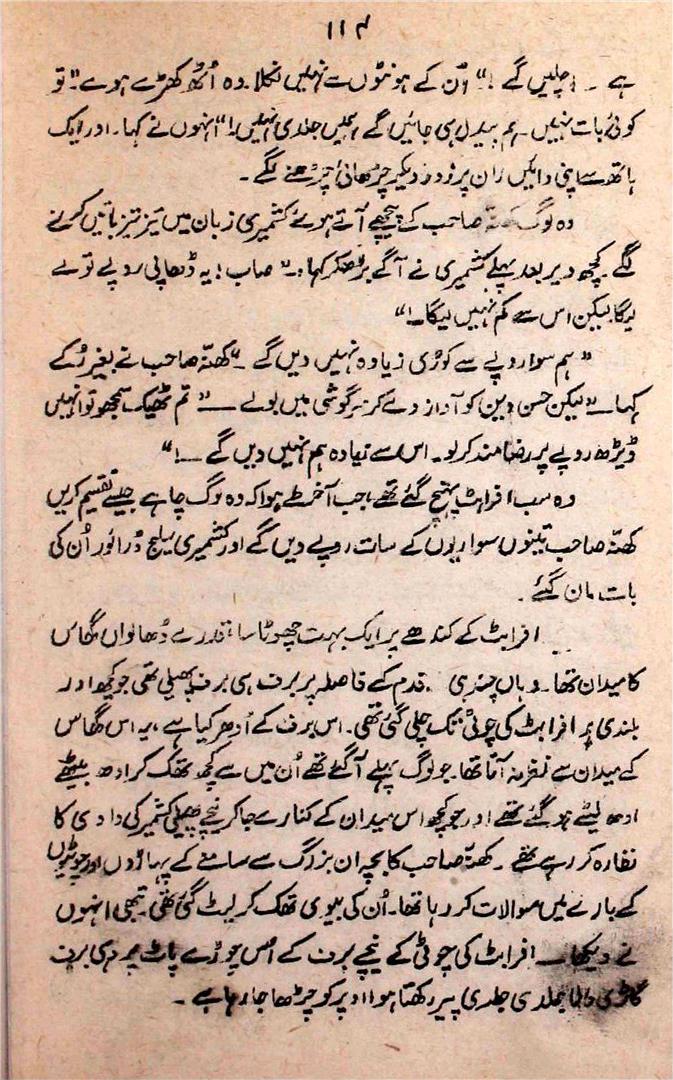 ۱۱۴
ہے ۔ اچلیں گے !“ اُن کے ہونٹوں سے نہیں نکلا۔ وہ اُٹھ کھڑے ہوے۔”تو
کوئی بات نہیں۔ ہم پیدل ہی جائیں گے ہمیں جلدی نہیں!“ انہوں نے کہا۔ اور ایک
ہاتھ سے اپنی دائیں ران پر زور دیکر چڑھائی چڑھنے لگے ۔
وہ لوگ کھنّہ صاحب کے پیچھے آتے ہوئے کشمیری زبان میں تیز تیز باتیں کرنے
لگے ۔ کچھ دیر بعد پہلے کشمیری نے آگے بڑھکر کہا۔” صاب ! یہ ڈھاپی روپے تولے
لیگا لیکن اس سے کم نہیں لیگا۔!“
” ہم سوا روپے سے کوڑی زیادہ نہیں دیں گے ۔“ کھنّہ صاحب نے بغیر رُکے
کہا۔” لیکن حسن دین کو آواز دے کر سرگوشی میں بولے ـــ” تم ٹھیک سمجھو تو انہیں
ڈیڑھ روپے پر رضامند کر لو۔ اس سے زیادہ ہم نہیں دیں گے ـــ !“
وہ سب افراہٹ پہنچ گئے تھے، جب آخر طے ہوا کہ وہ لوگ چاہے جیسے تقسیم کریں
کھنّہ صاحب تینوں سواریوں کے سات روپے دیں گے اور کشمیری سلیج ڈرائور اُن کی
بات مان گئے ۔
افراہٹ کے کندھے پر ایک بہت چھوٹا سا، قدرے ڈھالواں گھاس
کا میدان تھا۔ وہاں چند ہی قدم کے فاصلہ پر برف ہی برف پھیلی تھی جو کچھ اور
بلندی پر افراہٹ کی چوٹی تک چلی گئی تھی۔ اس برف کے اُدھر کیا ہے، یہ اس گھاس
کے میدان سے نظر نہ آتا تھا۔ جو لوگ پہلے آ گئے تھے اُن میں سے کچھ تھک کر ادھ بیٹھے
ادھ لیٹے ہو گئے تھے اور جو کچھ اس میدان کے کنارے جا کر نیچے پھیلی کشمیر کی وادی کا
نظارہ کر رہے تھے ۔ کھنّہ صاحب کا بچہ ان بزرگ سے سامنے کے پہاڑوں اور چوٹیوں
کے بارے میں سوالات کر رہا تھا۔ اُن کی بیوی تھک کر لیٹ گئی تھی۔ تبھی انہوں
نے دیکھا۔ افراہٹ کی چوٹی کے نیچے برف کے اُس چوڑے پاٹ پر وہی برف
گاڑی والا جلدی جلدی پیر رکھتا ہوا اوپر کو چڑھا جا رہا ہے ۔